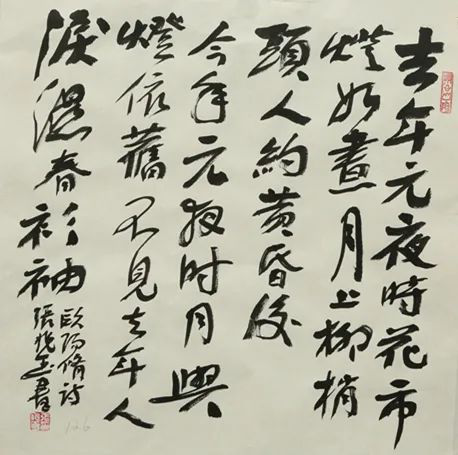 去年元夜時花市
燈如晝月上柳梢
頭人約黄昏後
今年元夜时月與
燈依舊不見去年人
淚濕春衫袖
歐陽脩詩
張 書
12.6